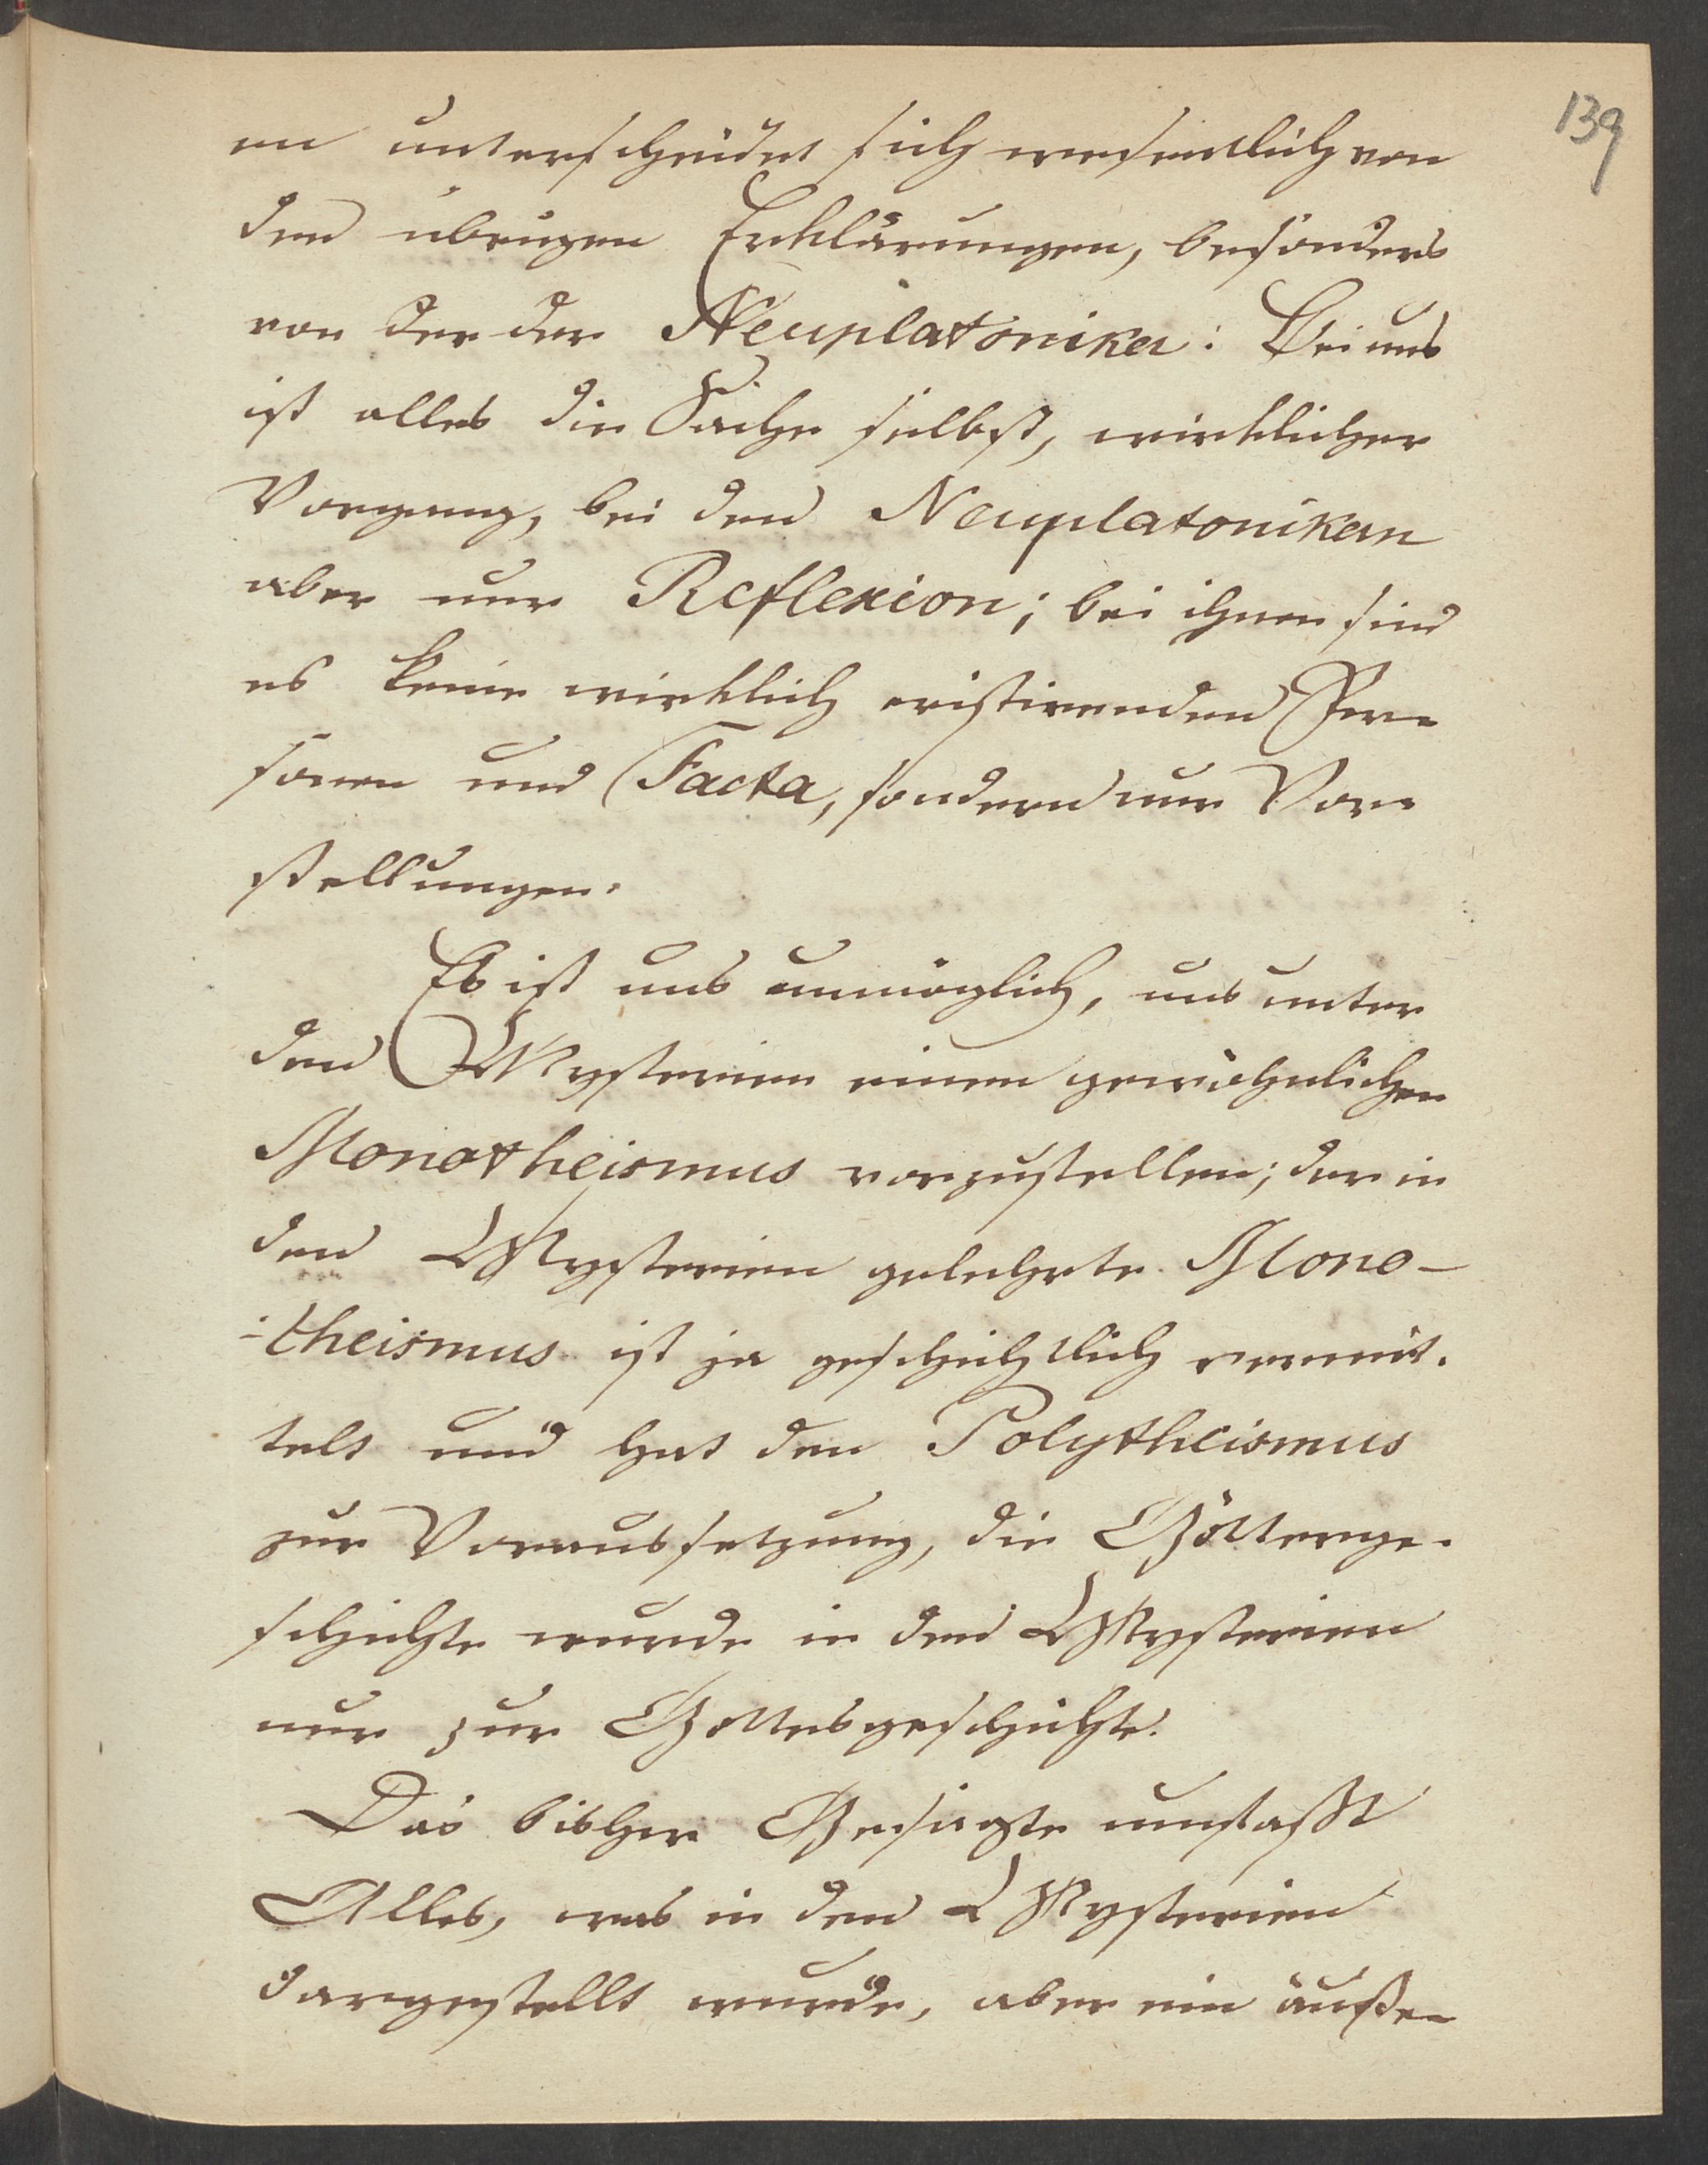 139
en unterscheidet sich wesentlich von
den übrigen Erklärungen, besonders
von der der Neuplatoniker: Bei uns
ist alles die Sache selbst, wirklicher
Vorgang, bei den Neuplatonikern
aber nur Reflexion; bei ihnen sind
es keine wirklich existirenden Per-
sonen und Facta, sondern nur Vor-
stellungen.
Es ist uns unmöglich, uns unter
den Mysterien einen gewöhnlichen
Monotheismus vorzustellen; der in
den Mysterien gelehrte Mono-
-theismus ist ja geschichtlich vermit-
telt und hat den Polytheismus
zur Voraussetzung, die Götterge-
schichte wurde in den Mysterien
nur zur Gottesgeschichte.
Das bisher Gesagte umfaßt
Alles, was in den Mysterien
dargestellt wurde, aber ein äußer